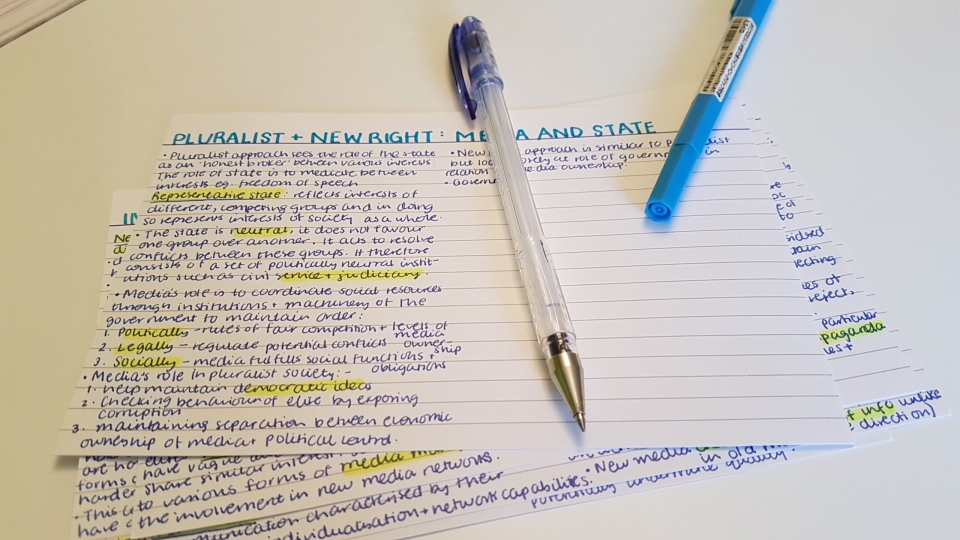 PLURALIST + NEW RIGHT : ME A AND STATE
• Pluralist approach sees the role of the state
as an 'honest broker' between various interests
The role of state is to mediate between
interests eg. freedom of speech
Representative state: reflects interests of
different, competing groups and in doing
so represents interests of society as a whole.
• The state is neutral, it does not favour
one group over another. It acts to resolve
conflicts between these groups. It therefore
consists of a set of politically neutral instit-
utions such as civil service + judiciary
• Media's role is to coordinate social resources
through institutions + machinery of the
government to maintain order:
1. Politically - rules of fair competition + levels of
media
2. Legally - regulate potential conflicts owner-
ship
3. Socially - media fulfills social functions +
obligations
• Media's role in pluralist society:-
1. help maintain democratic ideas
2. Checking behaviour of elite by exposing
corruption
3. maintaining separation between economic
ownership of media + political control.
• New approach is similar to
but role of govern in
relation media ownership
• Govern
Ne
to
reject.
particular
info unlike
direction)
are no elite
forms (have vague
harder share similar interest
media
• This is to various forms of
have the involvement in new media networks.
characterised by their
+ network capabilities.
• New media
in old
potentially undermine quality.